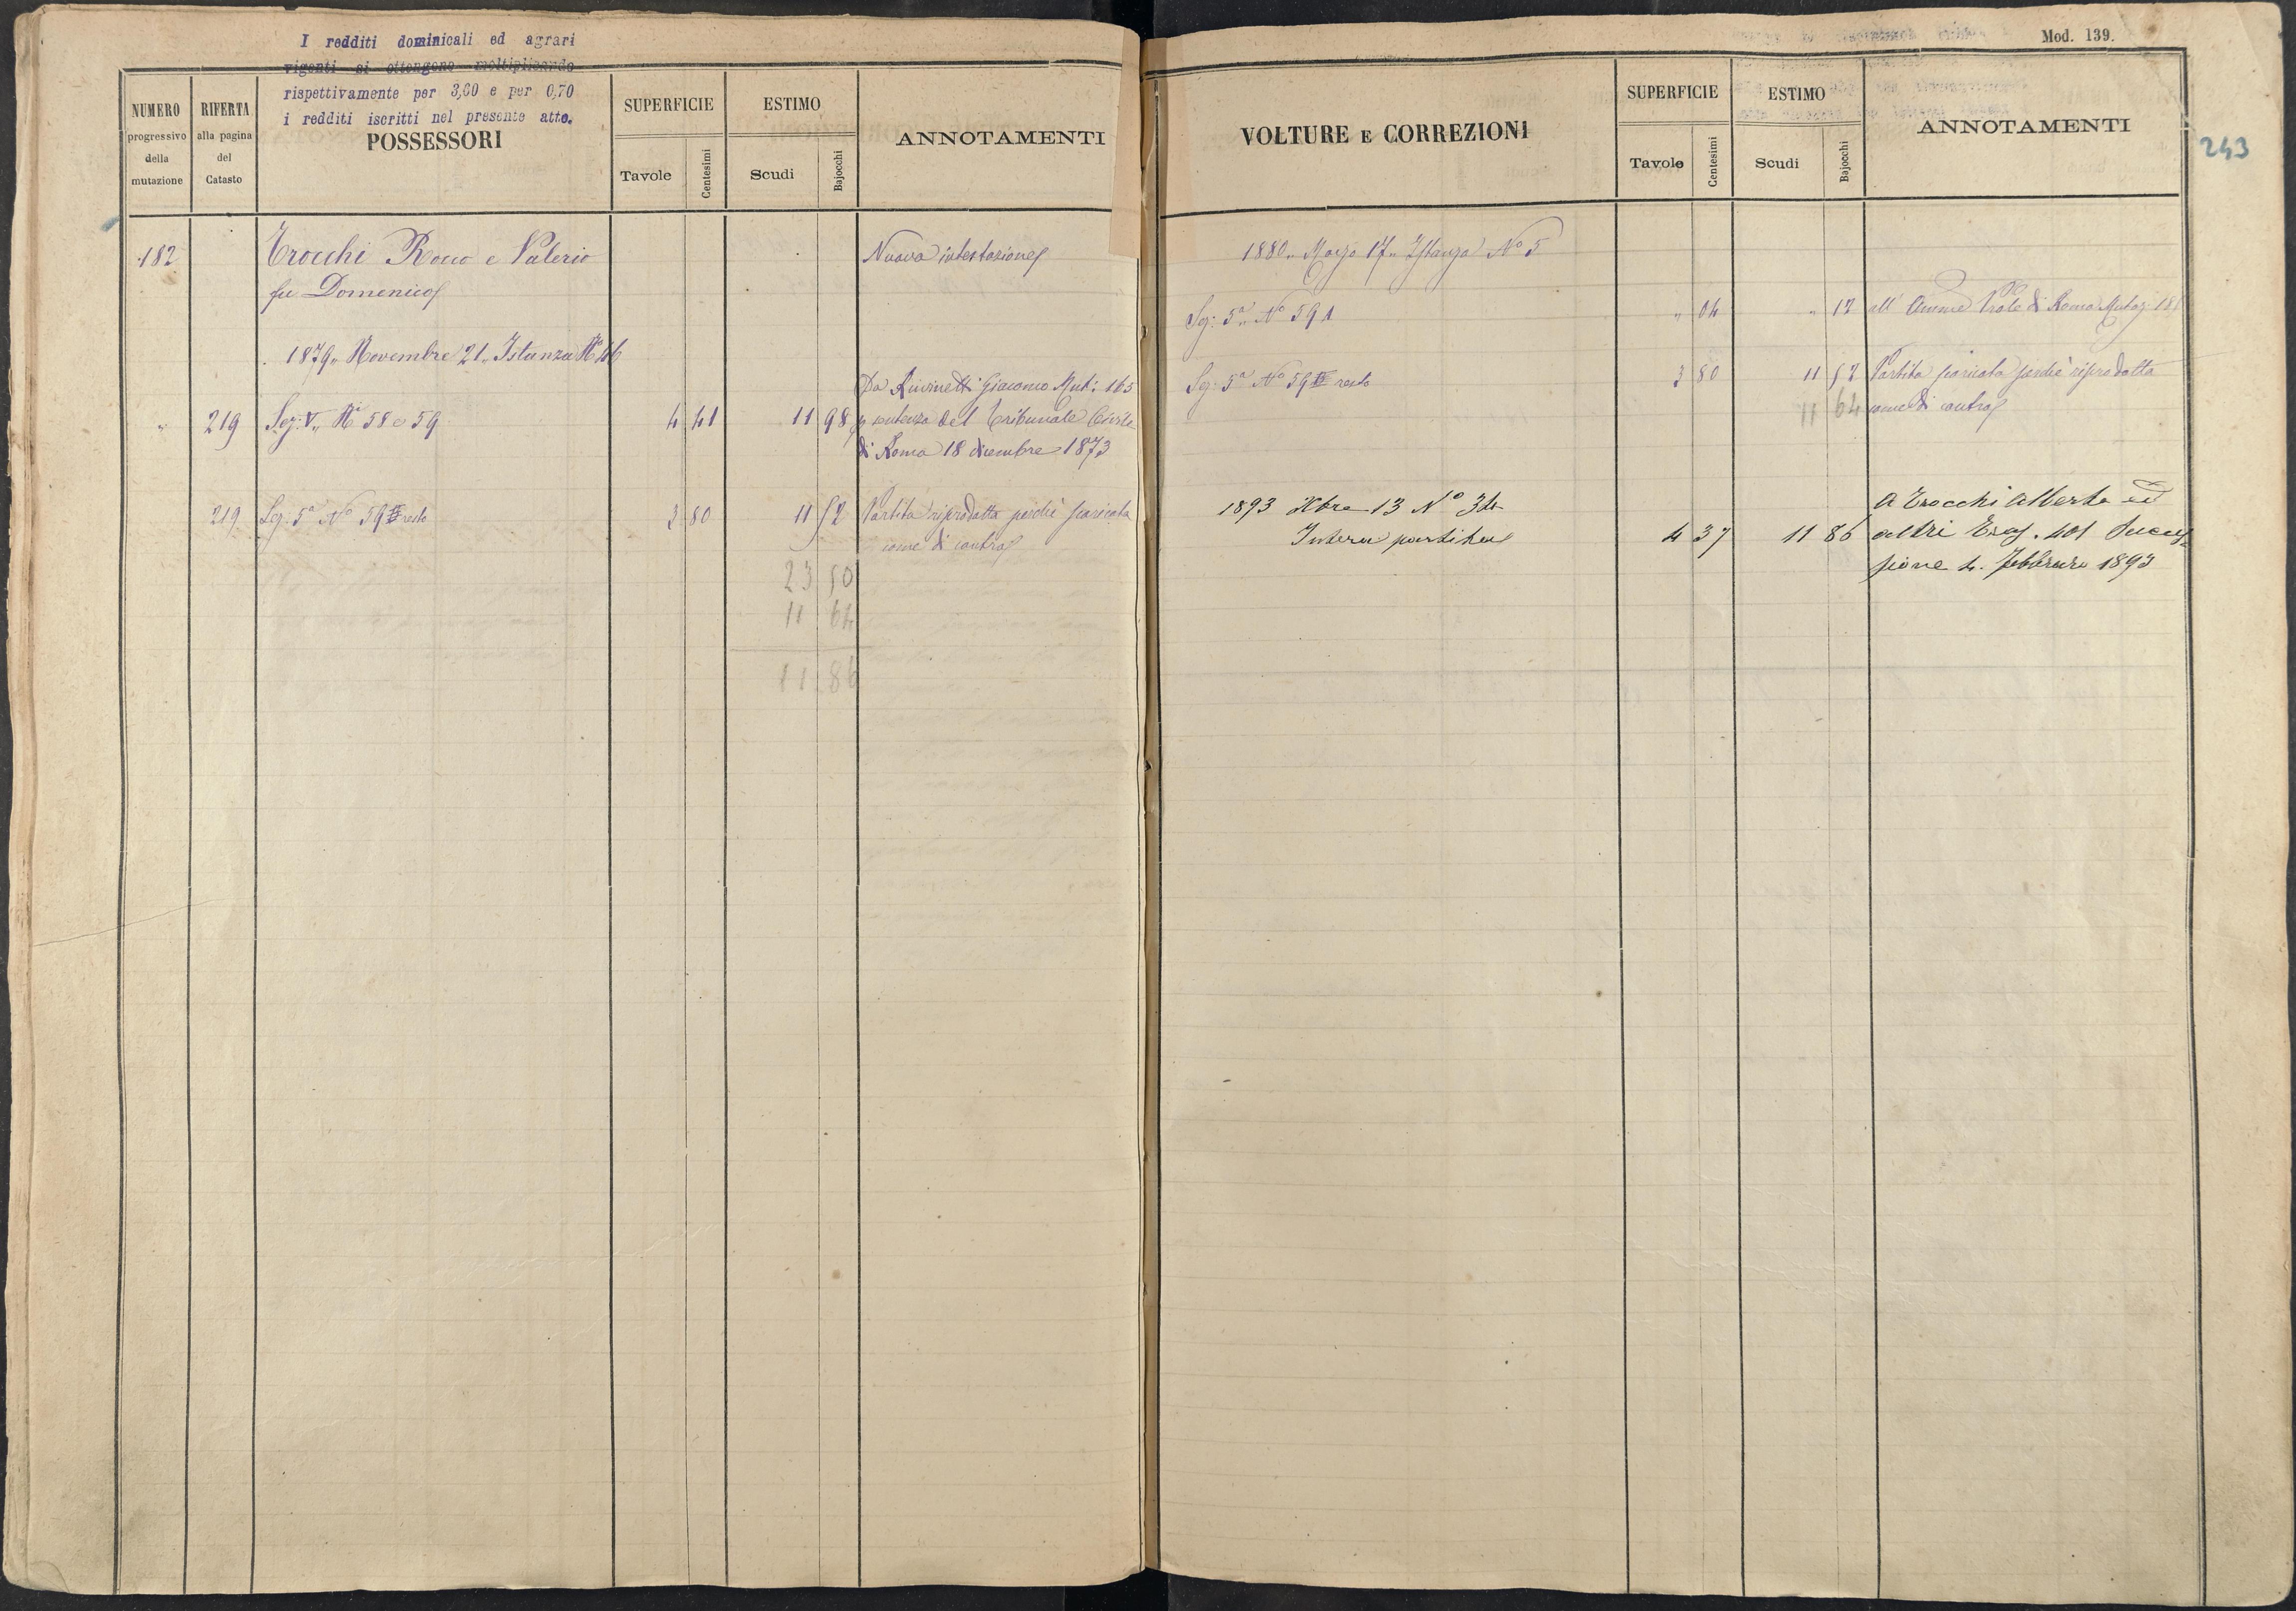 I redditi dominicali ed agrari
vigenti si ottengono moltiplicando
rispettivamente per 3,60 e per 0,70
i redditi iscritti nel presente atto.
NUMERO
progressivo
della
mutazione
RIFERTA
alla pagina
del
Catasto
POSSESSORI
SUPERFICIE
Tavole
Centesimi
ESTIMO
Scudi
Bajocchi
ANNOTAMENTI
182
Trocchi Rocco e Valerio
Nuova intestazione
fu Domenico
1879 Novembre 21 Istanza N° 46
Da Giacomo Mut: 165
" 219 Sez: V. N. 58 e 59 4 41 11 98 p sentenza del Tribunale Civile
di Roma 18 dicembre 1873
219 Sez: 5ª N° 59 resto 3 80 11 52 Partita riprodotta perchè scaricata
come di contro
23 50
11 64
11.86
Mod. 139.
VOLTURE E CORREZIONI
SUPERFICIE
Tavole
Centesimi
ESTIMO
Scudi
Bajocchi
ANNOTAMENTI
243
1880 Marzo 17 Istanza N° 5
Sez: 5ª N° 59 1 " 04 " 12 all' Amme di Roma Mutaz:
Sez: 5ª N° 59 resto 3 80 11 52 Partita scaricata perchè riprodotta
11 64 come di contro
1893 Xbre 13 N° 34 A Trocchi Alberto ed
Intera partita 4 37 11 86 altri 401 Succes-
sione 4. Febbraro 1893